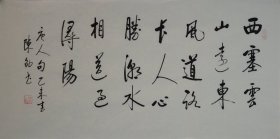 西塞雲
山遠東
風道路
長人心
勝潮水
相送過
潯陽
唐人句乙未
陳